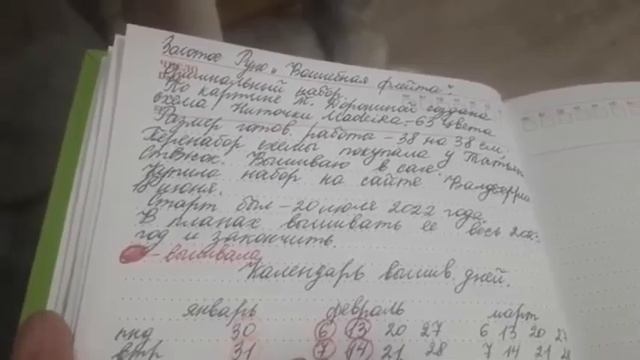 Золотое Руно „Волшебная флейта".
ЧИСЛО
Оригинальный набор.
По картине М. Дорошиной создана
схема. Ниточки Madeira - 63 цвета
Размер готов. работы - 38 на 38 см.
Перенабор схемы покупала у Татьян
Стёнок. Вышиваю в саге.
Купила набор на сайте
июня.
Старт был - 20 июля 2022 года.
В планах вышивать её весь
год и закончить.
- вышивала
Календарь вышив. дней.
январь февраль март
пнд 30 6 13 20 27 6 13 20
втр 31 7 14 21 28 7 14 21